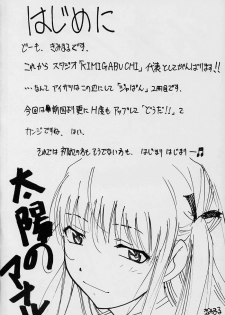 はじめに
どーも、きみまるです。
これから スタジオ「KIMIGABUCHI」代表としてがんばります!!
…なんて アイサツはこの辺にして「じゃぱん」2冊目です。
今回は前回より更にH度もアップして「どうだ!!」って
カンジですね。はい。
それでは 初めての方もそうでない方も、はじまりはじまりー♫
太陽の
きみまる